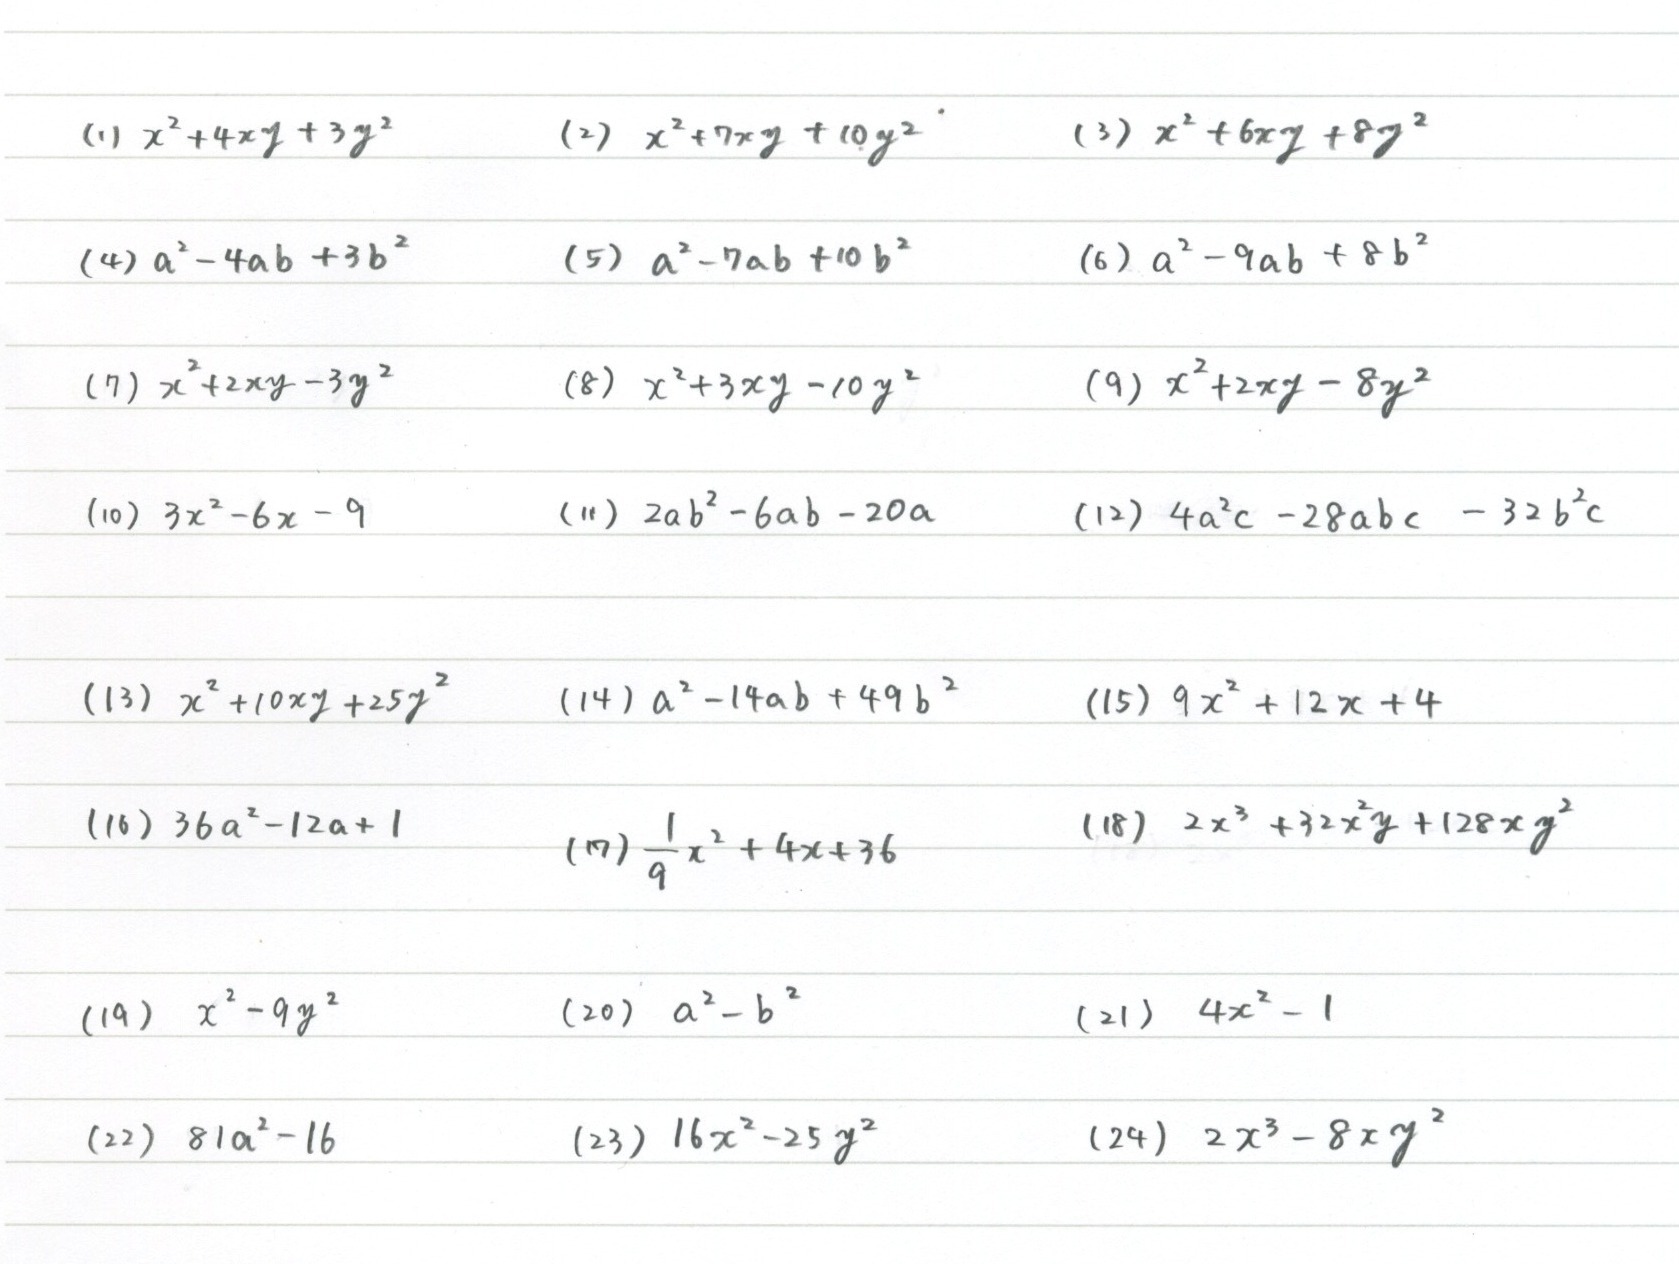 (1) x²+4xy+3y² (2) x²+7xy+10y² (3) x²+6xy+8y²
(4) a²-4ab+3b² (5) a²-7ab+10b² (6) a²-9ab+8b²
(7) x²+2xy-3y² (8) x²+3xy-10y² (9) x²+2xy-8y²
(10) 3x²-6x-9 (11) 2ab²-6ab-20a (12) 4a²c-28abc-32b²c
(13) x²+10xy+25y² (14) a²-14ab+49b² (15) 9x²+12x+4
(16) 36a²-12a+1 (17) 1/9x²+4x+36 (18) 2x³+32x²y+128xy²
(19) x²-9y² (20) a²-b² (21) 4x²-1
(22) 81a²-16 (23) 16x²-25y² (24) 2x³-8xy²